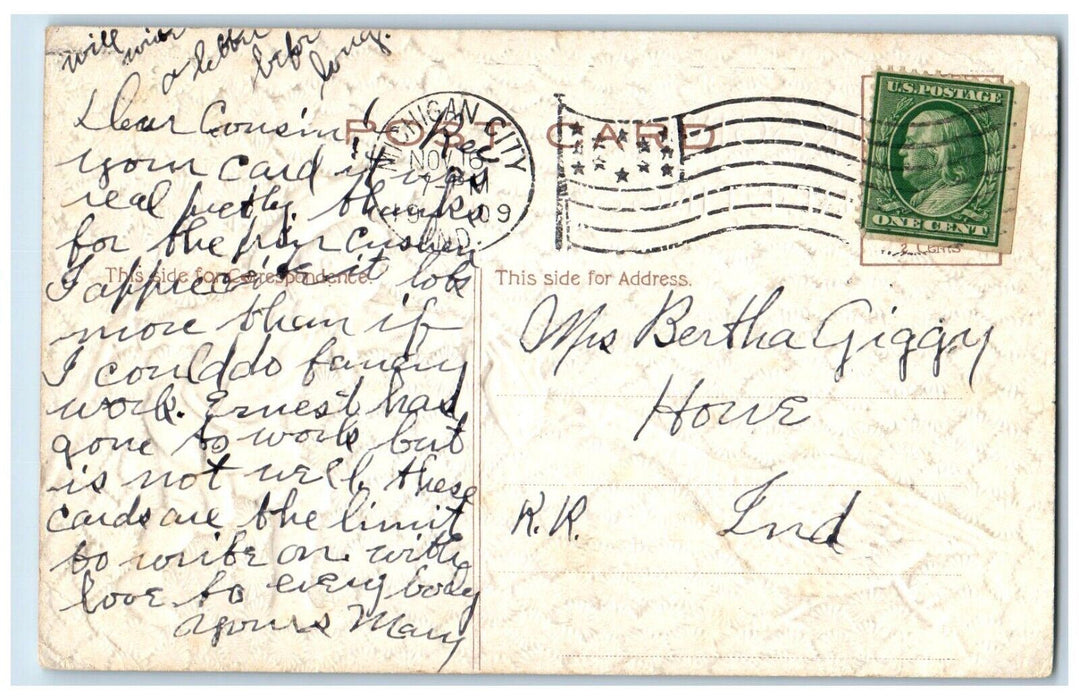 will write
a letter
before
long.
Dear Cousin!
your card it was
real pretty. thanks
for the pin cushen
I appreciate it lots
more than if
I could do fancy
work. Ernest has
gone to work but
is not well. these
cards are the limit
to write on. with
love to every body
yours Mary
POST CARD
MICHIGAN CITY
NOV 16
7 PM
1909
IND.
U.S. POSTAGE
ONE CENT
2 Cents
This side for Correspondence.
This side for Address.
Mrs Bertha Giggy
Howe
R.R. Ind